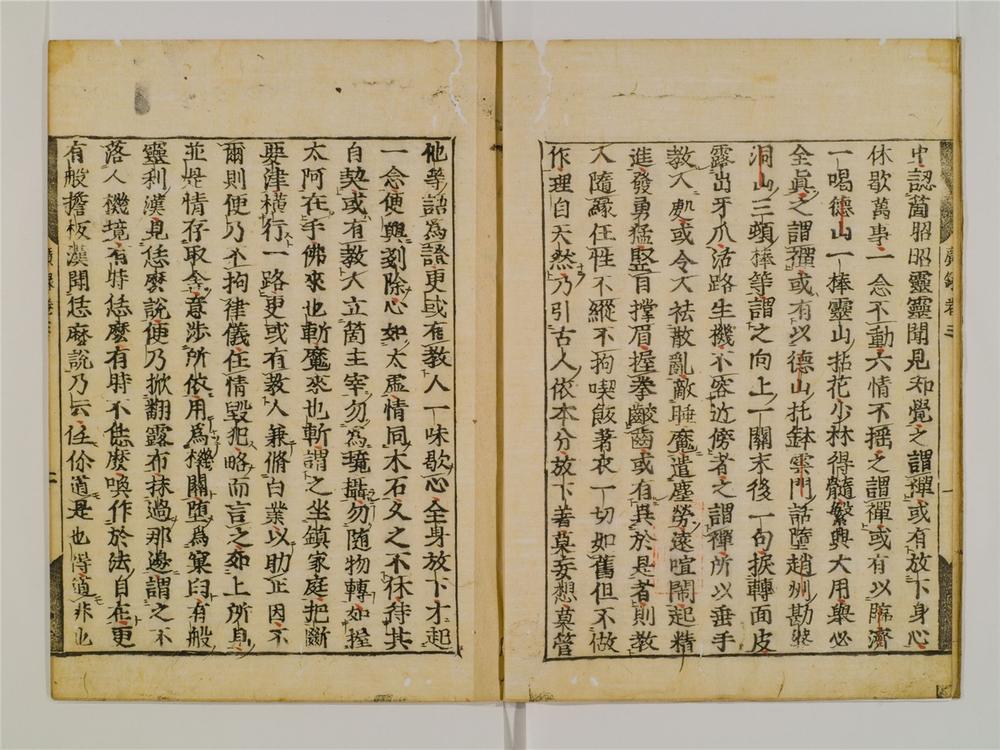 中認箇昭昭靈靈聞見知覺之謂禪或有放下身心
休歇萬事一念不動六情不搖之謂禪或有以臨濟
一喝德山一棒靈山拈花少林得髓繁興大用舉必
全眞之謂禪或有以德山托鉢雲門話墮趙州勘婆
洞山三頓棒等謂之向上一關末後一句捩轉面皮
露出牙爪活路生機不容近傍者之謂禪所以垂手
教人處或令人祛散亂敵睡魔遣塵勞遠喧鬧起精
進發勇猛竪目撑眉握拳齩齒或有異於是者則教
人隨緣任性不縱不拘喫飯著衣一切如舊但不做
作理自天然乃引古人依本分放下著莫妄想莫管
廣錄卷三
一
他等語爲證更或有教人一味歇心全身放下才起
一念便與剗除心如太虛情同木石久之不休待其
自契或有教人立箇主宰勿爲境攝勿隨物轉如握
太阿在手佛來也斬魔來也斬謂之坐鎮家庭把斷
要津橫行一路更或有教人兼脩白業以助正因不
爾則便乃不拘律儀任情毀犯略而言之如上所見
並是情存取舍意涉所依用爲機關墮爲窠臼有般
靈利漢見恁麼說便乃掀翻露布抹過那邊謂之不
落人機境有時恁麼有時不恁麼喚作於法自在更
有般擔板漢聞恁麼說乃云任你道是也得道非也
二